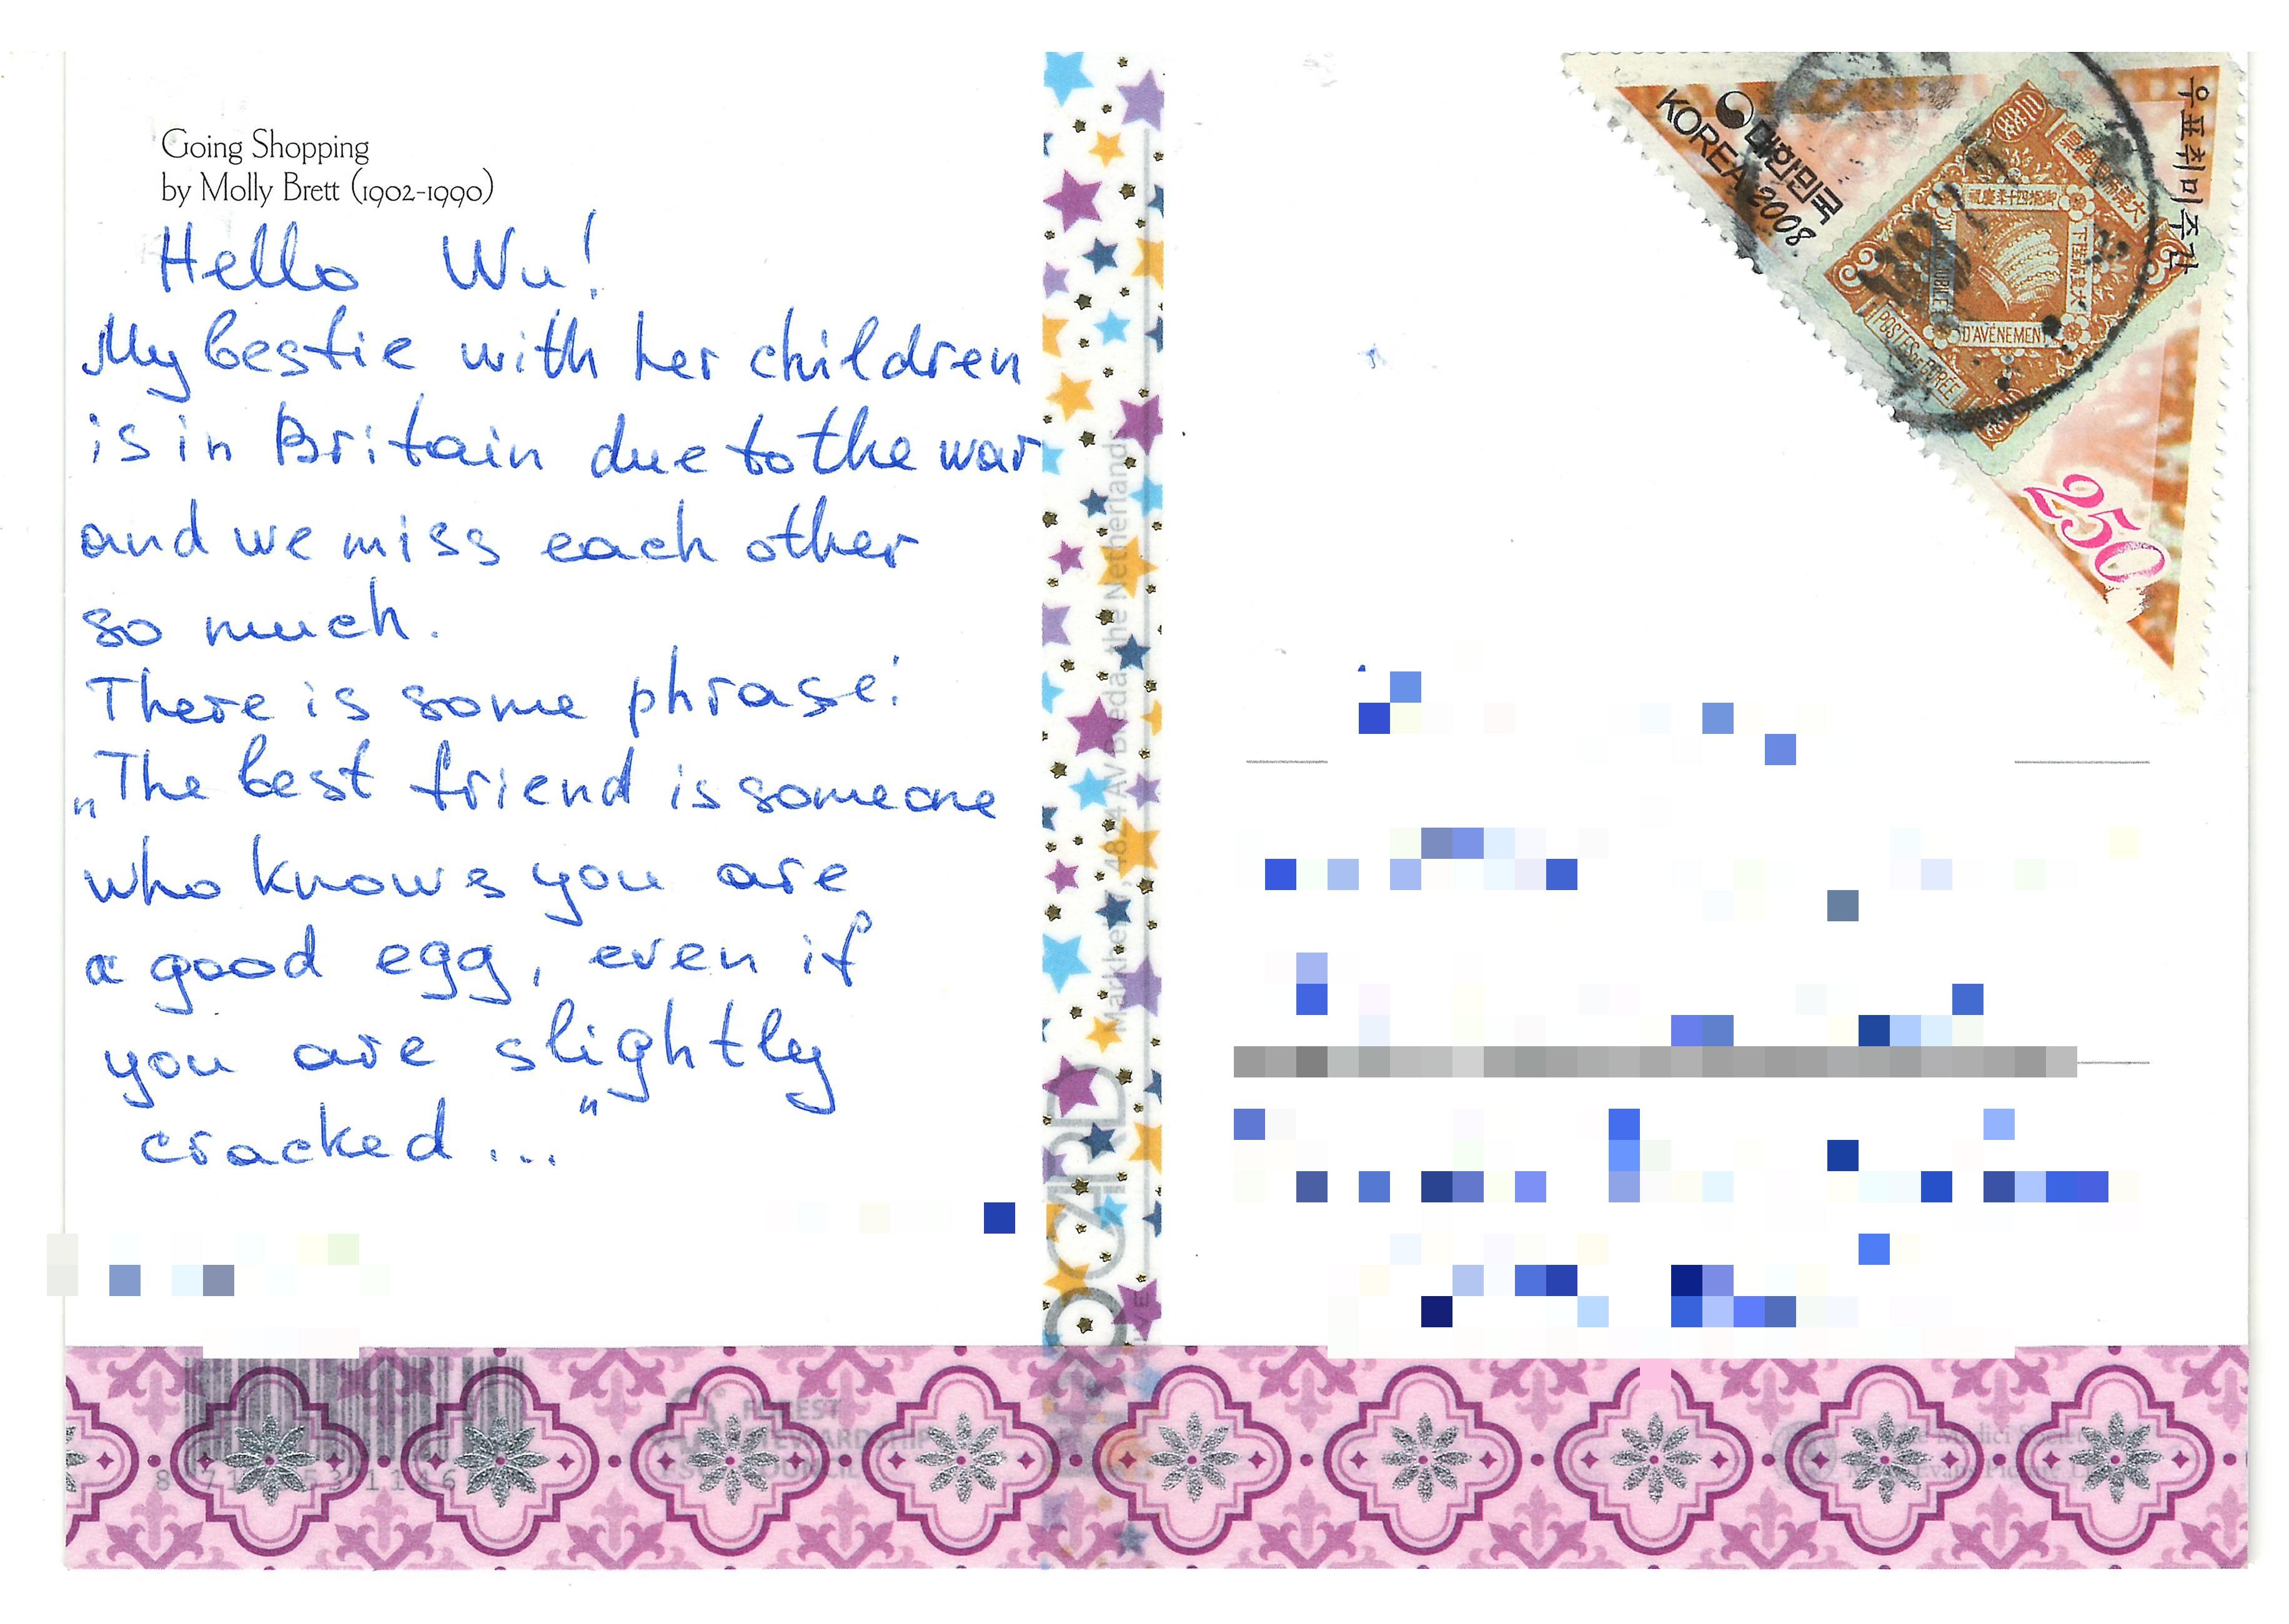 Going Shopping
by Molly Brett (1902-1990)
Hello Wu!
My bestie with her children
is in Britain due to the war
and we miss each other
so much.
There is some phrase:
„The best friend is someone
who knows you are
a good egg, even if
you are slightly
cracked..."
, 4824 AV Breda, the Netherlands
CARD
FOREST
STEWARDSHIP
COUNCIL
대한민국
KOREA 2008
우표취미주간
POSTES DE COREE
D'AVÉNEMENT
250